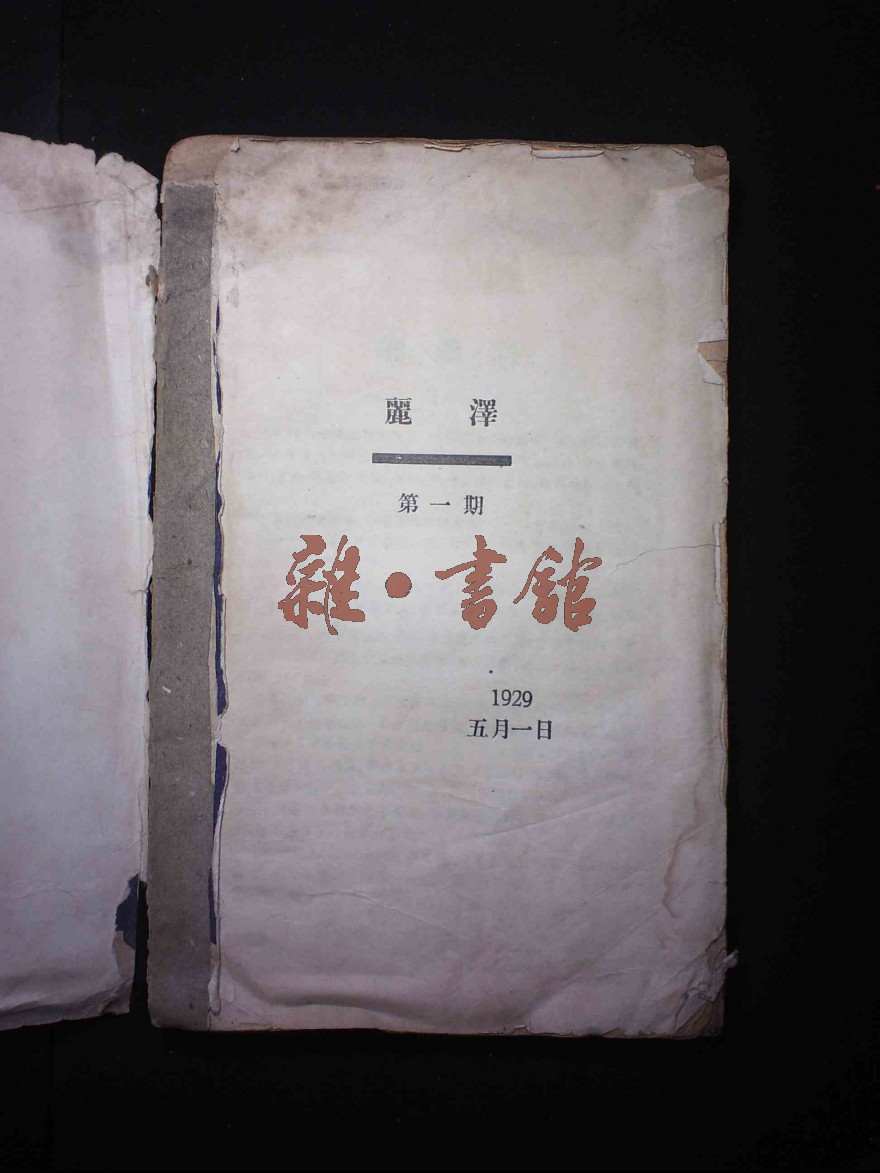 麗澤
第一期
雜·書館
1929
五月一日